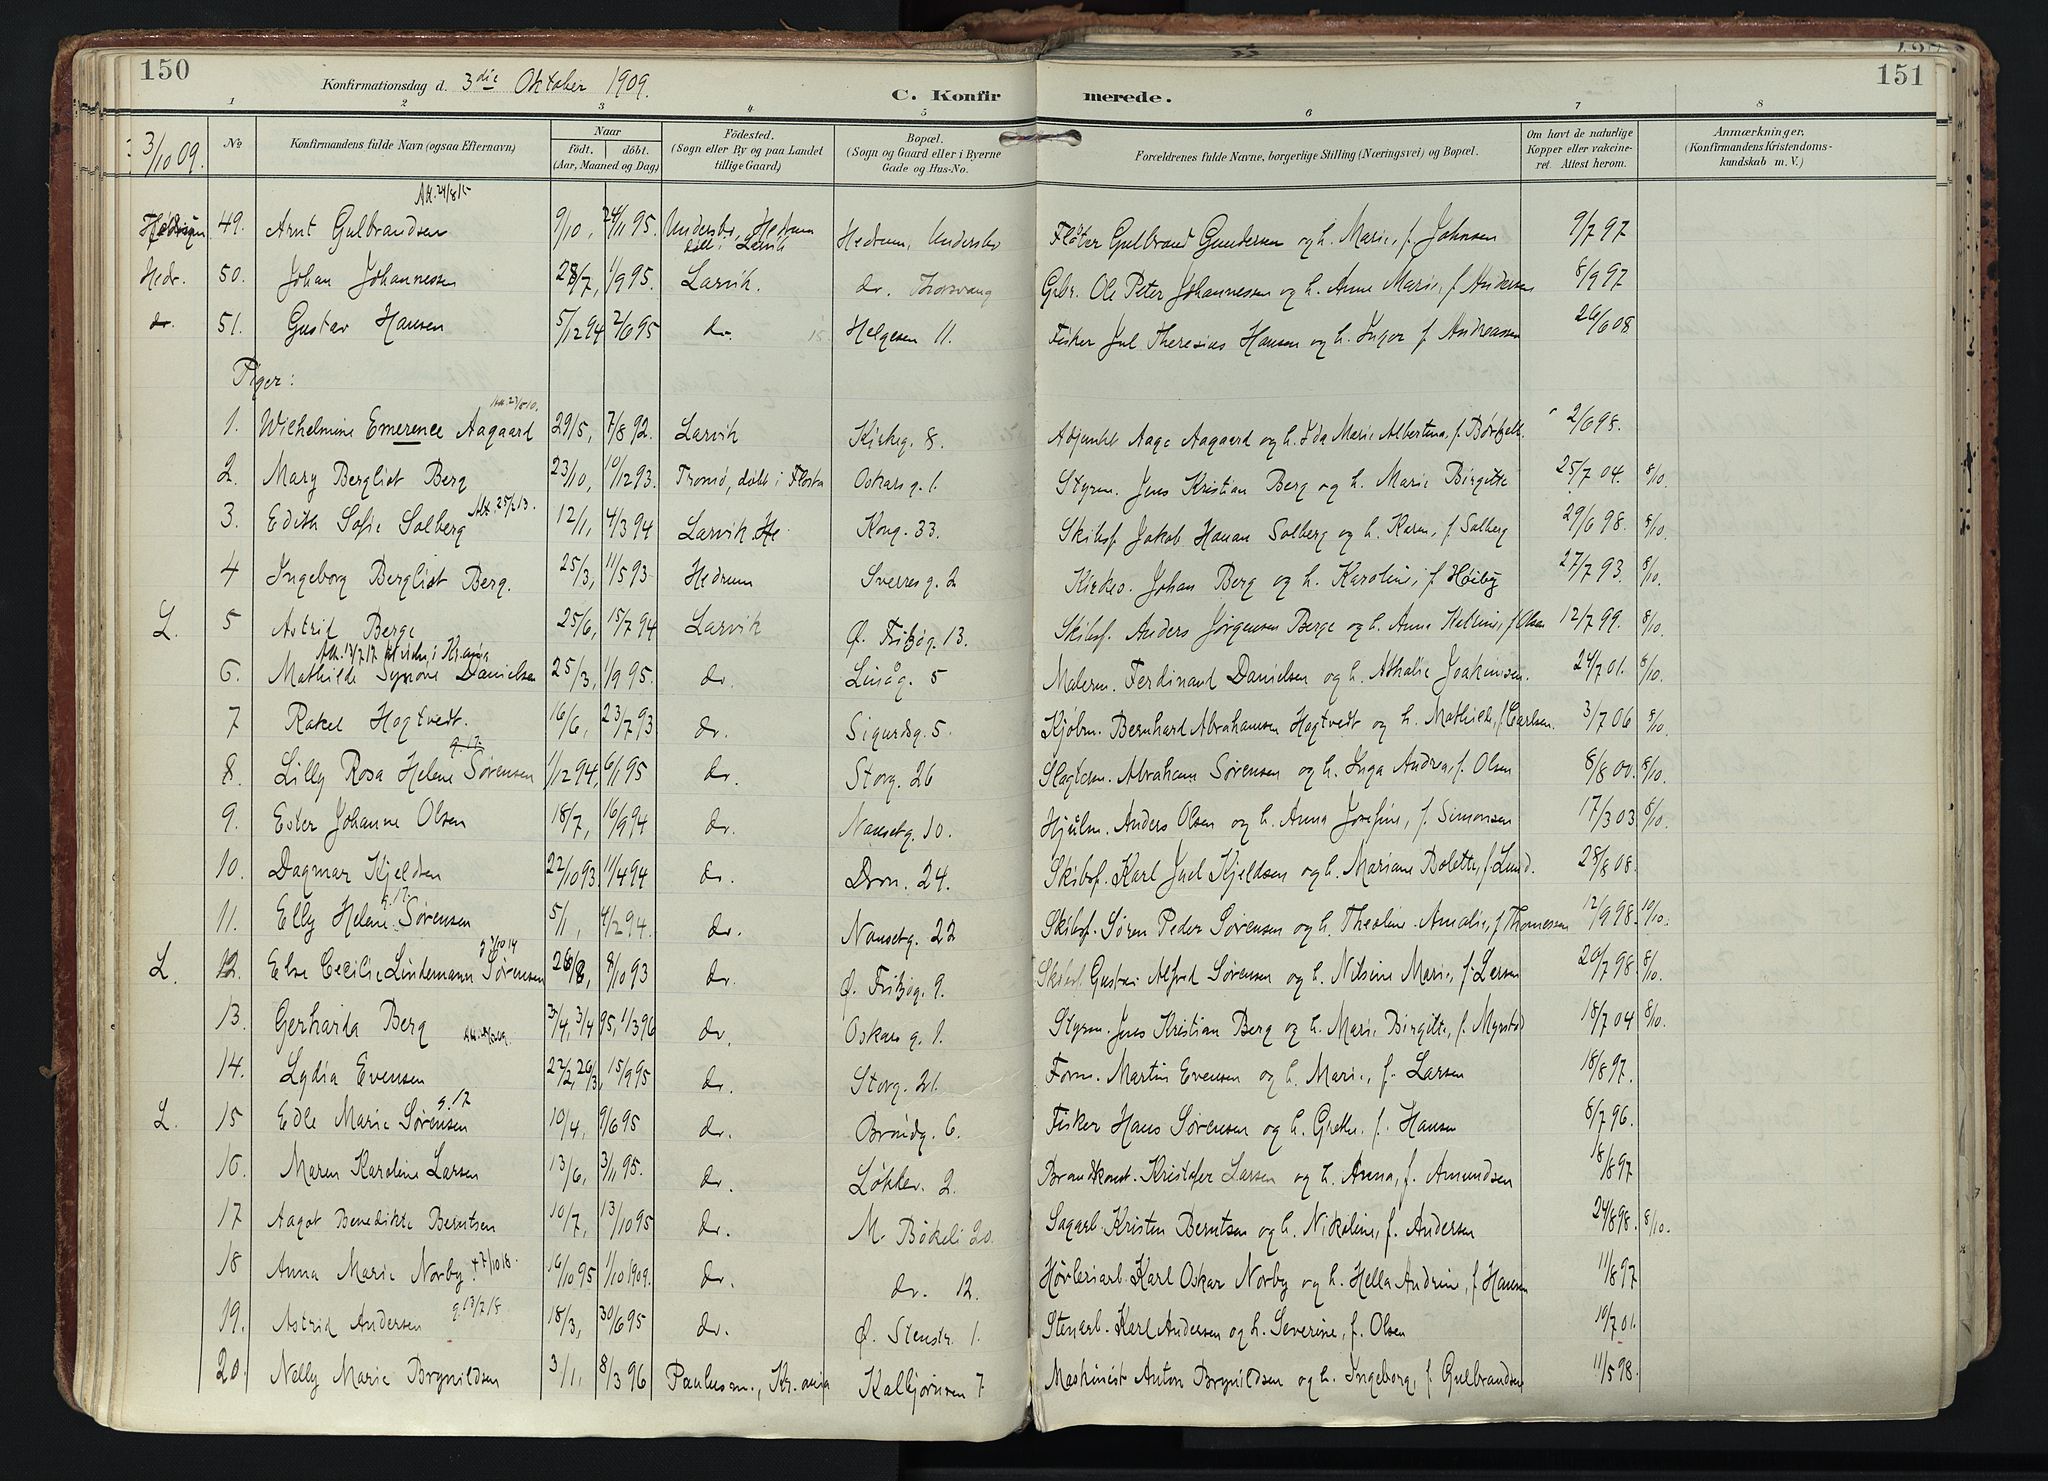 150
Konfirmationsdag d. 3die Oktober 1909.
C. Konfirmerede.
151
1 2 3 4 5 6 7 8
3/10 09.
No. Konfirmandens fulde Navn (ogsaa Efternavn) Naar Födt. döbt. (Aar, Maaned og Dag) Födested. (Sogn eller By og paa Landet tillige Gaard) Bopæl. (Sogn og Gaard eller i Byerne Gade og Hus-No. Forældrenes fulde Navne, borgerlige Stilling (Næringsvei) og Bopæl. Om havt de naturlige Kopper eller vakcineret. Attest herom. Anmærkninger. (Konfirmandens Kristendomskundskab m. V.)
Att. 24/8 15
49. Arnt Gulbrandsen 9/10, 24/11 95. Undersbo, Hedrum Hedrum, Undersbo Fløter Gulbrand Gundersen og h. Marie, f. Johnsen 9/7 97
Hedr. 50. Johan Johannessen 28/7, 1/9 95. Larvik. do. Torsvang Grbr. Ole Peter Johannessen og h. Anne Marie, f. Andersen 8/9 97
do. 51. Gustav Hansen 5/12 94 2/6 95 do. Helgesen 11. Fisker Jul Theresius Hansen og h. Inger f. Andreassen 26/6 08
Piger:
1. Wilhelmine Emerence Aagaard 29/5, 7/8 92. Larvik Kirkeg. 8. Adjunkt Aage Aagaard og h. Ida Marie Albertina, f. 2/6 98.
2. Mary Bergliot Berg 23/10, 10/12 93. Tromö, döbt i Flosta Oskarsg. 1. Styrm. Jens Kristian Berg og h. Marie Birgitte 25/7 04. 8/10.
3. Edith Sofie Solberg 12/1, 4/3 94 Larvik. He Kong. 33. Skibsf. Jakob Hanan Solberg og h. Karen, f. Solberg 29/6 98. 8/10.
4 Ingeborg Bergliot Berg. 25/3, 11/5 93 Hedrum Sverresg. 2 Kirkeo. Johan Berg og h. Karoline, f. Høiby 27/7 93. 8/10.
L. 5 Astrid Berge 25/6, 15/7 94 Larvik Ø. Fritzög. 13. Skibsf. Anders Jørgensen Berge og h. Anne Katrine, f. Olsen 12/7 99. 8/10.
6. Mathilde Synöve Danielsen 25/3, 1/9 95. do. Linåg. 5 Malerm. Ferdinand Danielsen og h. Athalie Joakimsen. 24/7 01. 8/10.
7 Rakel Hogtvedt. 16/6, 23/7 93 do. Sigurdsg. 5. Kjøbm. Bernhard Abrahamsen Hogtvedt og h. Mathilde, f. Carlsen. 3/7 06 8/10.
g. 17.
8. Lilly Rosa Helene Sørensen 1/12 94, 6/1 95 do. Storg. 26 Slagterm. Abraham Sørensen og h. Inga Andrea, f. Olsen 8/8 00. 8/10.
9. Ester Johanne Olsen 18/7, 16/9 94 do. Nansetg. 10. Hjulm. Anders Olsen og h. Anna Josefine, f. Simonsen 17/3 03 8/10.
10. Dagmar Kjeldsen 22/10 93. 11/4 94 do. Dron. 24. Skibsf. Karl Juel Kjeldsen og h. Mariane Bolette, f. Lund. 28/8 08.
g. 17.
11. Elly Helene Sørensen 5/1, 4/2 94. do. Nansetg. 22 Skibsf. Sören Peder Sørensen og h. Theoline Amalie, f. Thomesen 12/9 98. 10/10.
g. 3/10 14
L. 12. Else Cecilie Lindemann Sørensen 26/8, 8/10 93 do. Ø. Fritzög. 9. Gustav Alfred Sørensen og h. Nilsine Marie, f. Larsen 20/7 98. 8/10.
13. Gerharda Berg 3/4, 3/4 95, 1/3 96 do. Oskarsg. 1. Styrm. Jens Kristian Berg og h. Marie Birgitte, f. Mynstad 18/7 04 8/10.
14. Lydia Evensen 22/2, 26/3, 15/9 95 do. Storg. 21. Form. Martin Evensen og h. Marie, f. Larsen 18/8 97.
g. 17
L. 15 Edle Marie Sørensen 10/4, 9/6 95 do. Bröndg. 6. Fisker Hans Sørensen og h. Grethe, f. Hansen 8/7 96.
16. Maren Karoline Larsen 13/6, 3/11 95. do. Løkkev. 2. Brandkonst. Kristofer Larsen og h. Anna, f. Amundsen 18/8 97
17 Aagot Benedikte Berntsen 10/7, 13/10 95 do. M. Bökeli 20. Sagarb. Kristen Berntsen og h. Nikoline, f. Andersen 24/8 98. 8/10.
18 Anna Marie Norby + 7/10 18. 16/10 95 1/10 1909. do. do. 12. Hövleriarb. Karl Oskar Norby og h. Hella Andrine, f. Hansen 11/8 97
19. Astrid Andersen g. 13/7 18. 18/3, 30/6 95 do. Ø. Stenstr. 1. Stenarb. Karl Andersen og h. Severine, f. Olsen 10/7 01.
20. Nelly Marie Brynildsen 3/1, 8/3 96 Paulusm., Kr.ania Kalbjörnsen 7 Maskinist Anton Brynildsen og h. Ingeborg, f. Gulbrandsen 11/5 98.